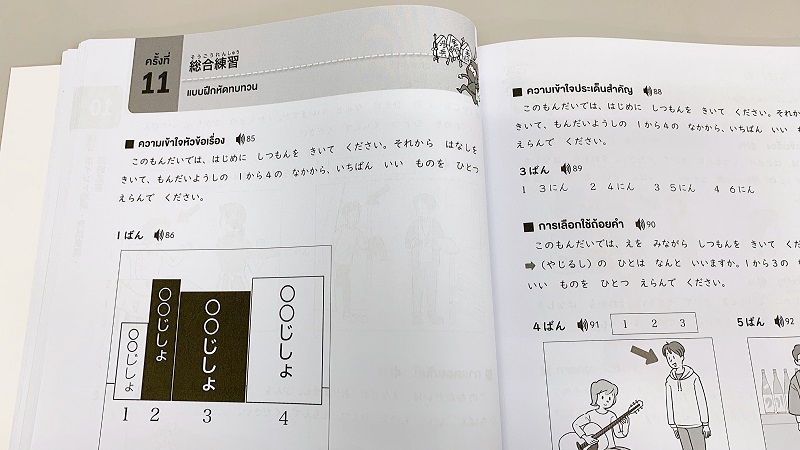 ครั้งที่
11
そうごうれんしゅう
総合練習
แบบฝึกหัดทบทวน
■ ความเข้าใจหัวข้อเรื่อง 85
このもんだいでは、はじめに しつもんを きいて ください。それから はなしを
きいて、もんだいようしの 1から4の なかから、いちばん いい ものを ひとつ
えらんで ください。
1ばん 86
〇〇じしょ
〇〇じしょ
〇〇じしょ
〇〇じしょ
1 2 3 4
■ ความเข้าใจประเด็นสำคัญ 88
このもんだいでは、はじめに しつもんを きいて ください。それか
きいて、もんだいようしの 1から4の なかから、いちばん いい も
えらんで ください。
3ばん 89
1 3にん 2 4にん 3 5にん 4 6にん
■ การเลือกใช้ถ้อยคำ 90
このもんだいでは、えを みながら しつもんを きいて くだ
➡(やじるし)の ひとは なんと いいますか。1から3の
いい ものを ひとつ えらんで ください。
4ばん 91 1 2 3
5ばん 92